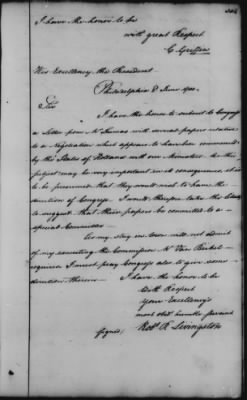 I have the honor to be
with great Respect
C. Griffin
His Excellency the President
Philadelphia June
Sir
I have the honor to submit to Congress
a Letter from Mr Dumas with several papers relative
to a Negotiation which appears to have been commenced
by the States of Holland with our Minister. As this
subject may be very important in its consequences, it is
to be presumed that they would wish to have the
direction of Congress. I would therefore take the liberty
to suggest that these papers be committed to a
special Committee
As my stay in town will not admit
of my executing the Commission Mr Van Berkel
requires I must pray Congress also to give some
direction thereon I have the honor to be
With Respect
Your Excellency's
most obt humble servant
signed, Robt R Livingston